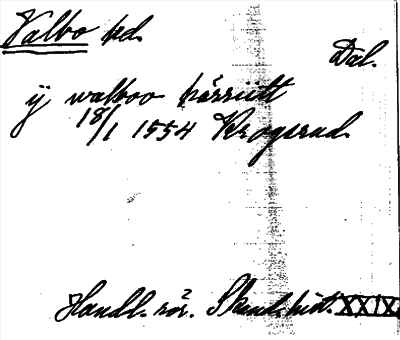 Valbo hd.
Dal.
ÿ walboo härriitt
18/1 1554 Krogsrud.
Handl. rör. Skand. hist. XXIX